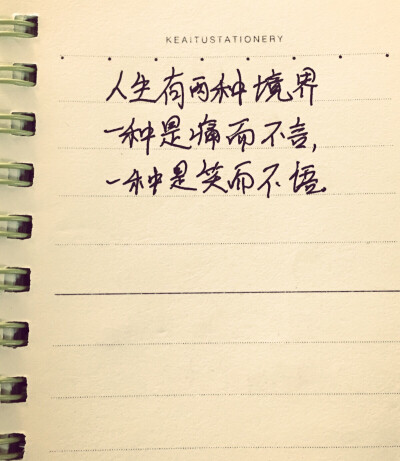 KEAITUSTATIONERY
人生有两种境界
一种是痛而不言,
一种是笑而不语.